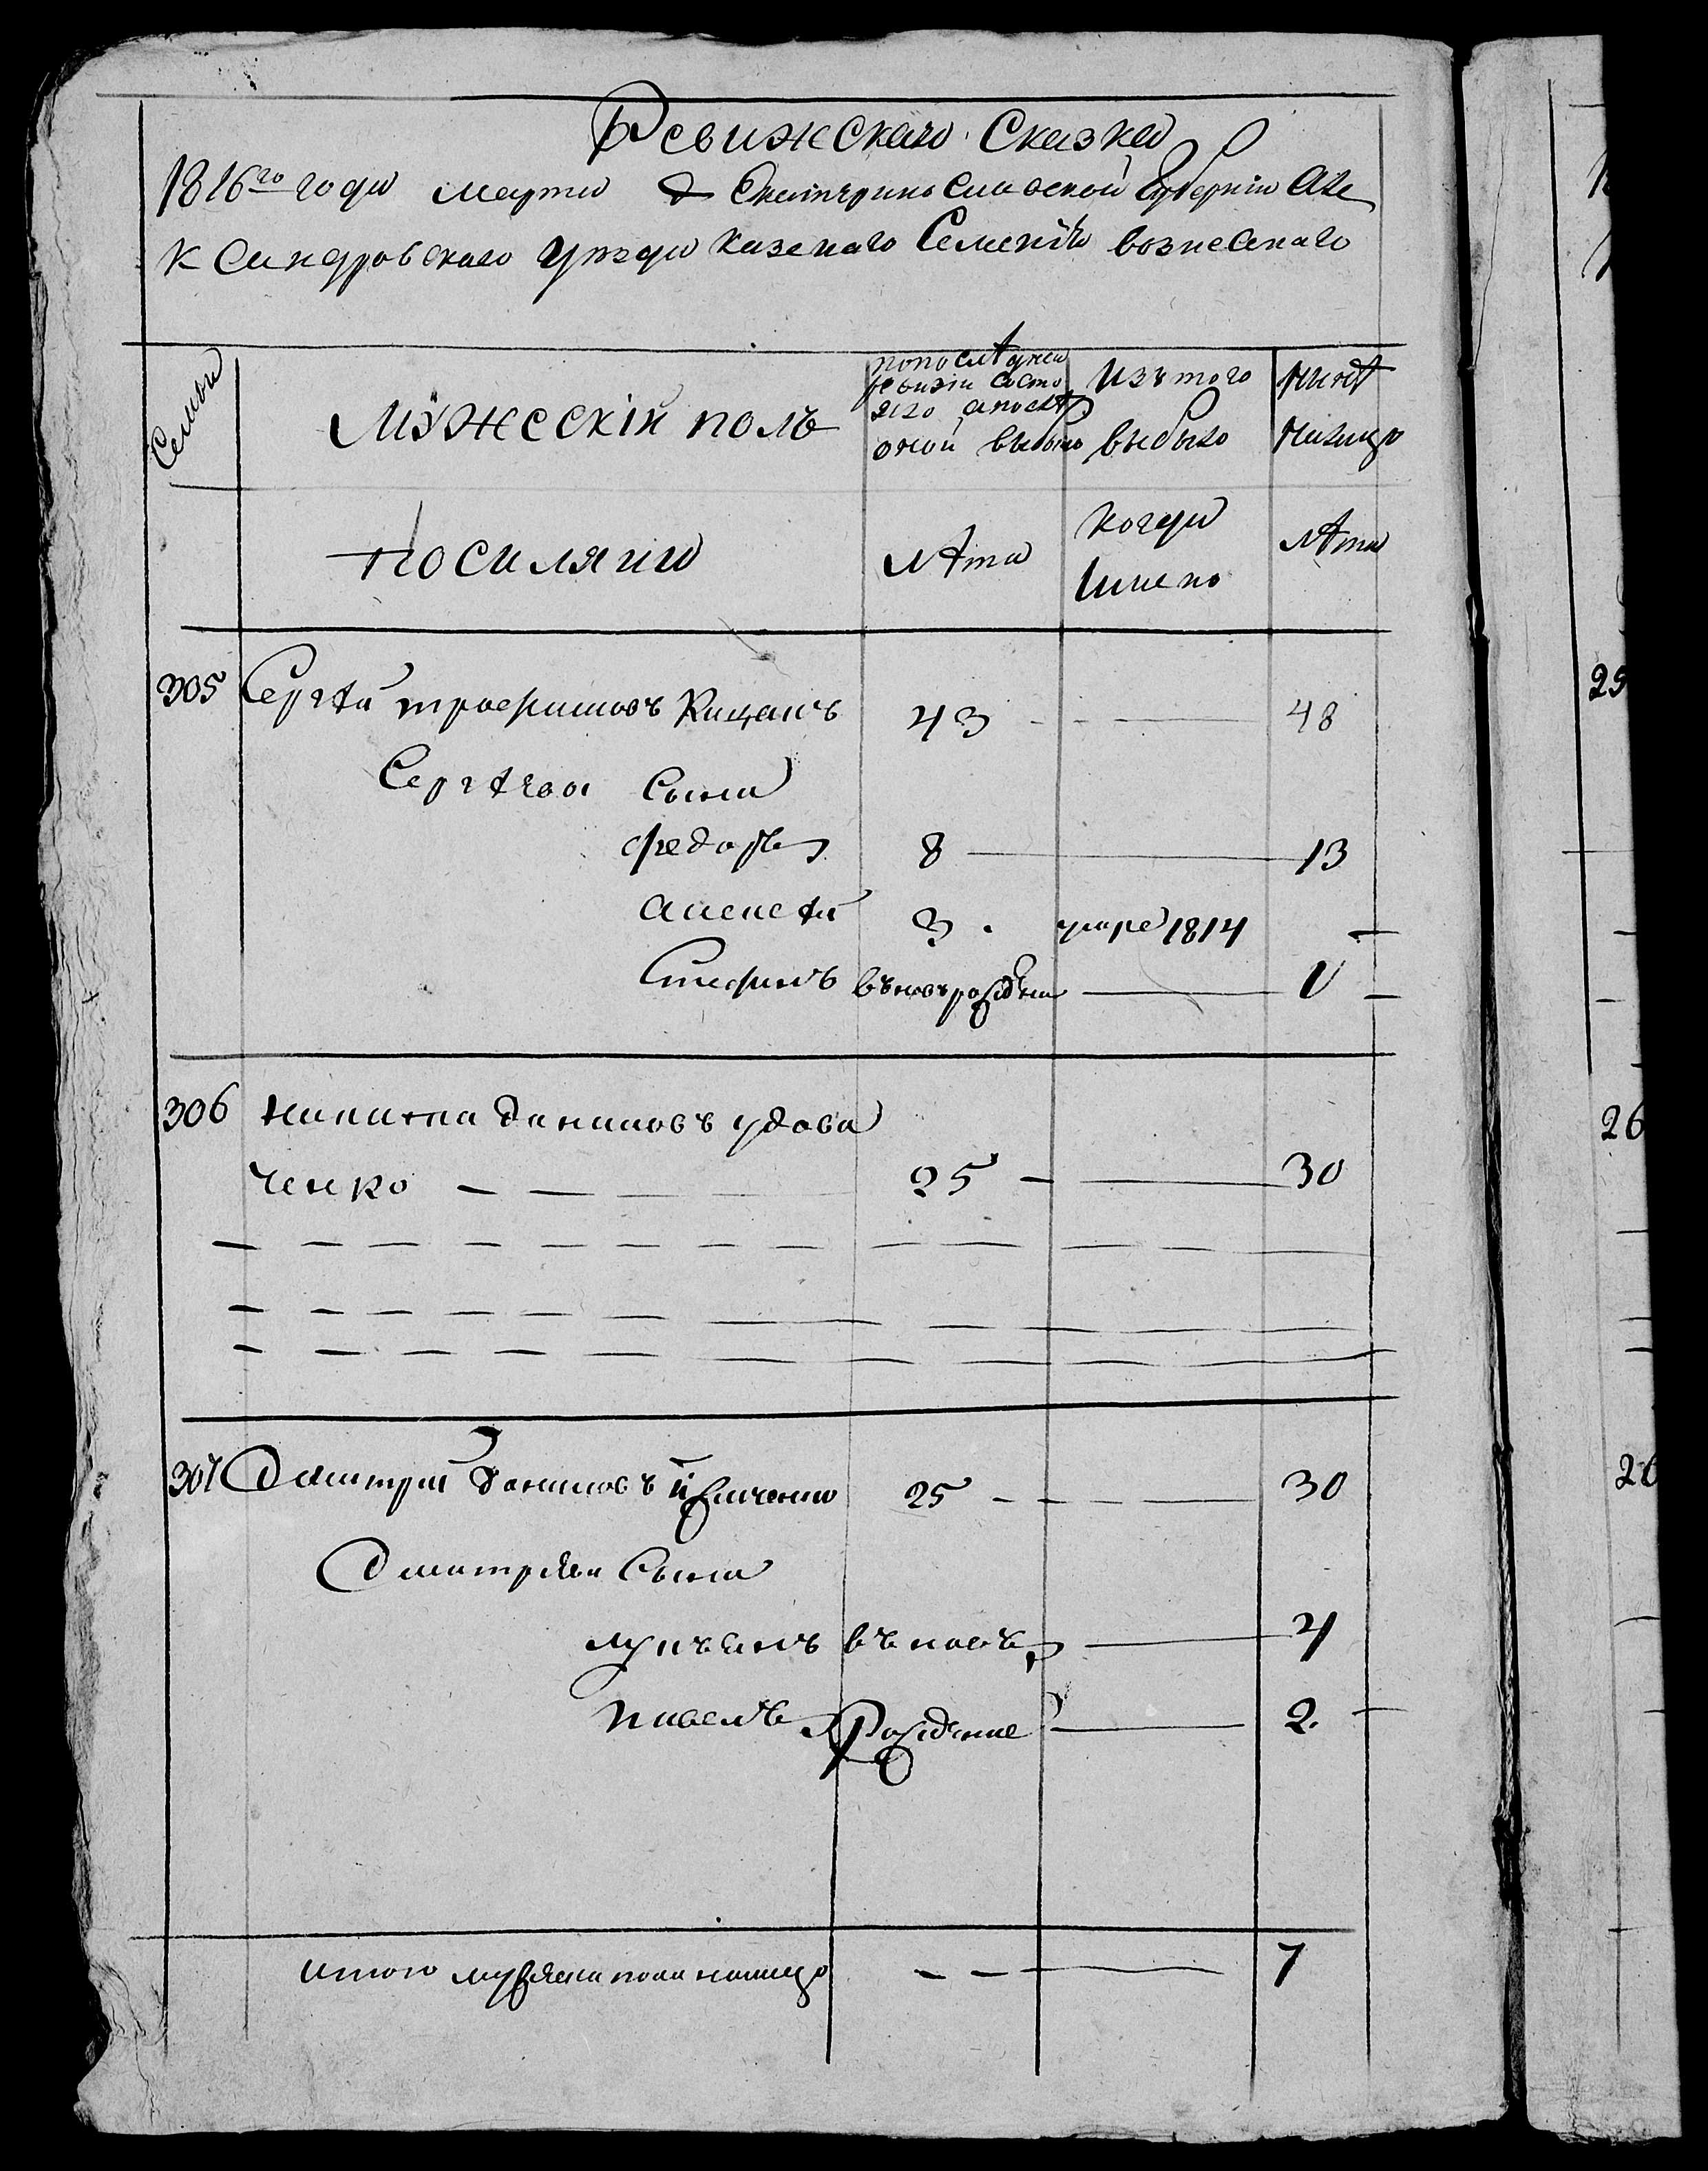 Ревижскаго Сказка
1816го года марта Екатеринославской Губернiи Але
ксандровского уезда казенаго Селенiя вознесенскаго
Семьи
Мужескiй полъ
попоследней
ревизiи состо
яло апосле
оной выбыло
Изъ того
выбыло
ныне
налицо
поселяни
лета
когда
имено
лета
305 Сергей трофимовъ Кицанъ 43 48
Сергеевы Сына
федоръ 8 13
Алексей 3 умре 1814 —
Стефанъ въновърожденъ
306 никита даниловъ удова
ченко 25 30
307 Дмитрий даниловъ 25 30
Дмитревы Сына
лукъянъ въ новъ 4
павелъ рожденые 2
итого мужеска пола налицо 7
25
26
26